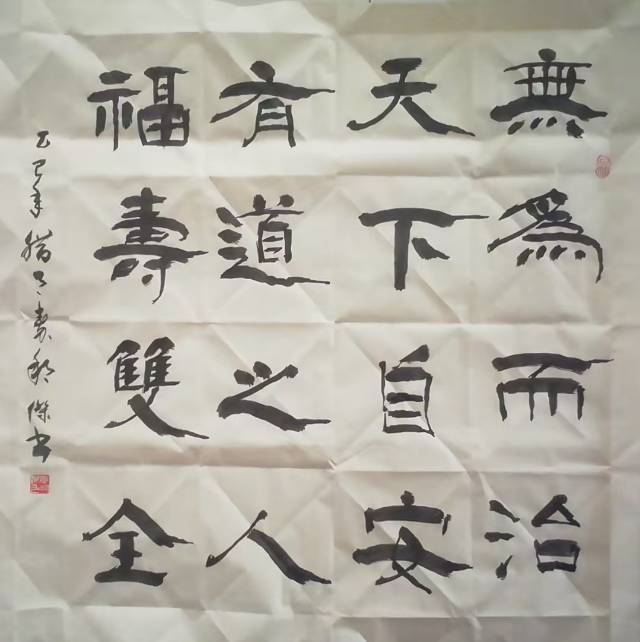 無為而治
天下自安
有道之人
福壽雙全
乙巳年腊月袁郡傑書